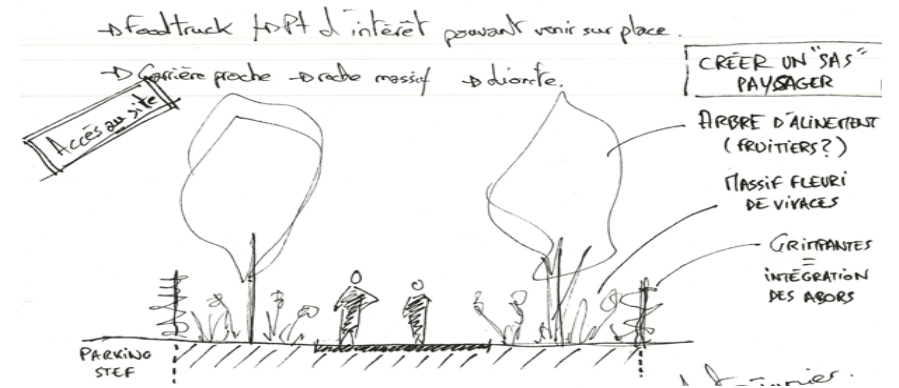 → Foodtruck → Pt d'intérêt pouvant venir sur place.
→ Carrière proche → roche massif → diorite.
Accès au site
CRÉER UN "SAS"
PAYSAGER
ARBRE D'ALINEMENT
(FRUITIERS?)
MASSIF FLEURI
DE VIVACES
GRIMPANTES
=
INTÉGRATION
DES ABORS
PARKING
STEF